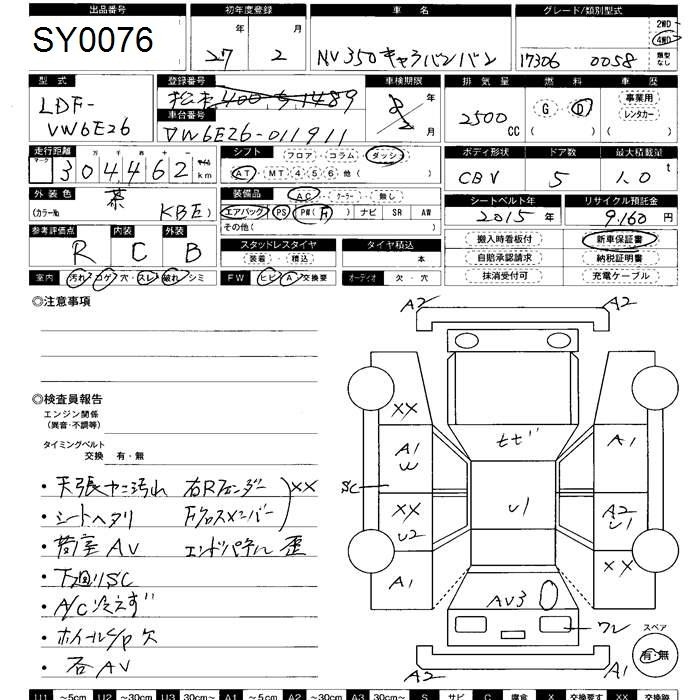 出品番号 初年度登録 車名 グレード/類別型式
SY0076 27年 2月 NV350キャラバンバン 17306 0058 2WD 4WD 類型なし
型式 登録番号 車検期限 排気量 燃料 車歴
LDF-VW6E26 松本400 さ1489 年 月 2500CC G D ( ) 事業用 レンタカー ( )
車台番号
VW6E26-011911
走行距離 シフト フロア・コラム ダッシュ ボディ形状 ドア数 最大積載量
マーク 十万千百十一 304462 マイル km AT・MT 4 5 6 他( ) CBV 5 1.0t
外装色 装備品 AC・クーラー・無し シートベルト年 リサイクル預託金
茶 (カラーNo. KBE) エアバック PS PW(F) ナビ SR AW 2015年 9.160円
その他( )
参考評価点 内装 外装 搬入時看板付 新車保証書
R C B スタッドレスタイヤ タイヤ積込 自賠承認請求 納税証明書
装着・積込 本 抹消受付可 充電ケーブル
室内 汚れ・コゲ・穴・スレ・破れ・シミ FW ヒビ・A・交換要 オーディオ 欠・穴
◎注意事項
A2 A2
◎検査員報告
エンジン関係
(異音・不調等)
タイミングベルト
交換 有・無
XX
A1 W
XX U2
A1
SC
U1
AV3
A1
A2 U1
XX
・天張ヤニ汚れ 右Rフェンダー XX
・シートヘタリ Fクロスメンバー
・荷室AV エンドパネル歪
・下廻りSC
・A/C冷えず
・ホイールC/P欠
・各AV
ワレ
スペア
有・無
A2 A1
U1 ~5cm U2 ~30cm U3 30cm~ A1 ~5cm A2 ~30cm A3 30cm~ S サビ C 腐食 X 交換要す XX 交換跡